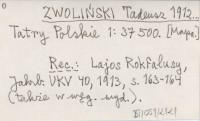 0
ZWOLIŃSKI Tadeusz 1912...
Tatry Polskie 1:37500. [Mapa.]
Rec.: Lajos Rokfalusy,
Jahrb. UKV 40, 1913, s. 163-164
(także w węg. wyd.).